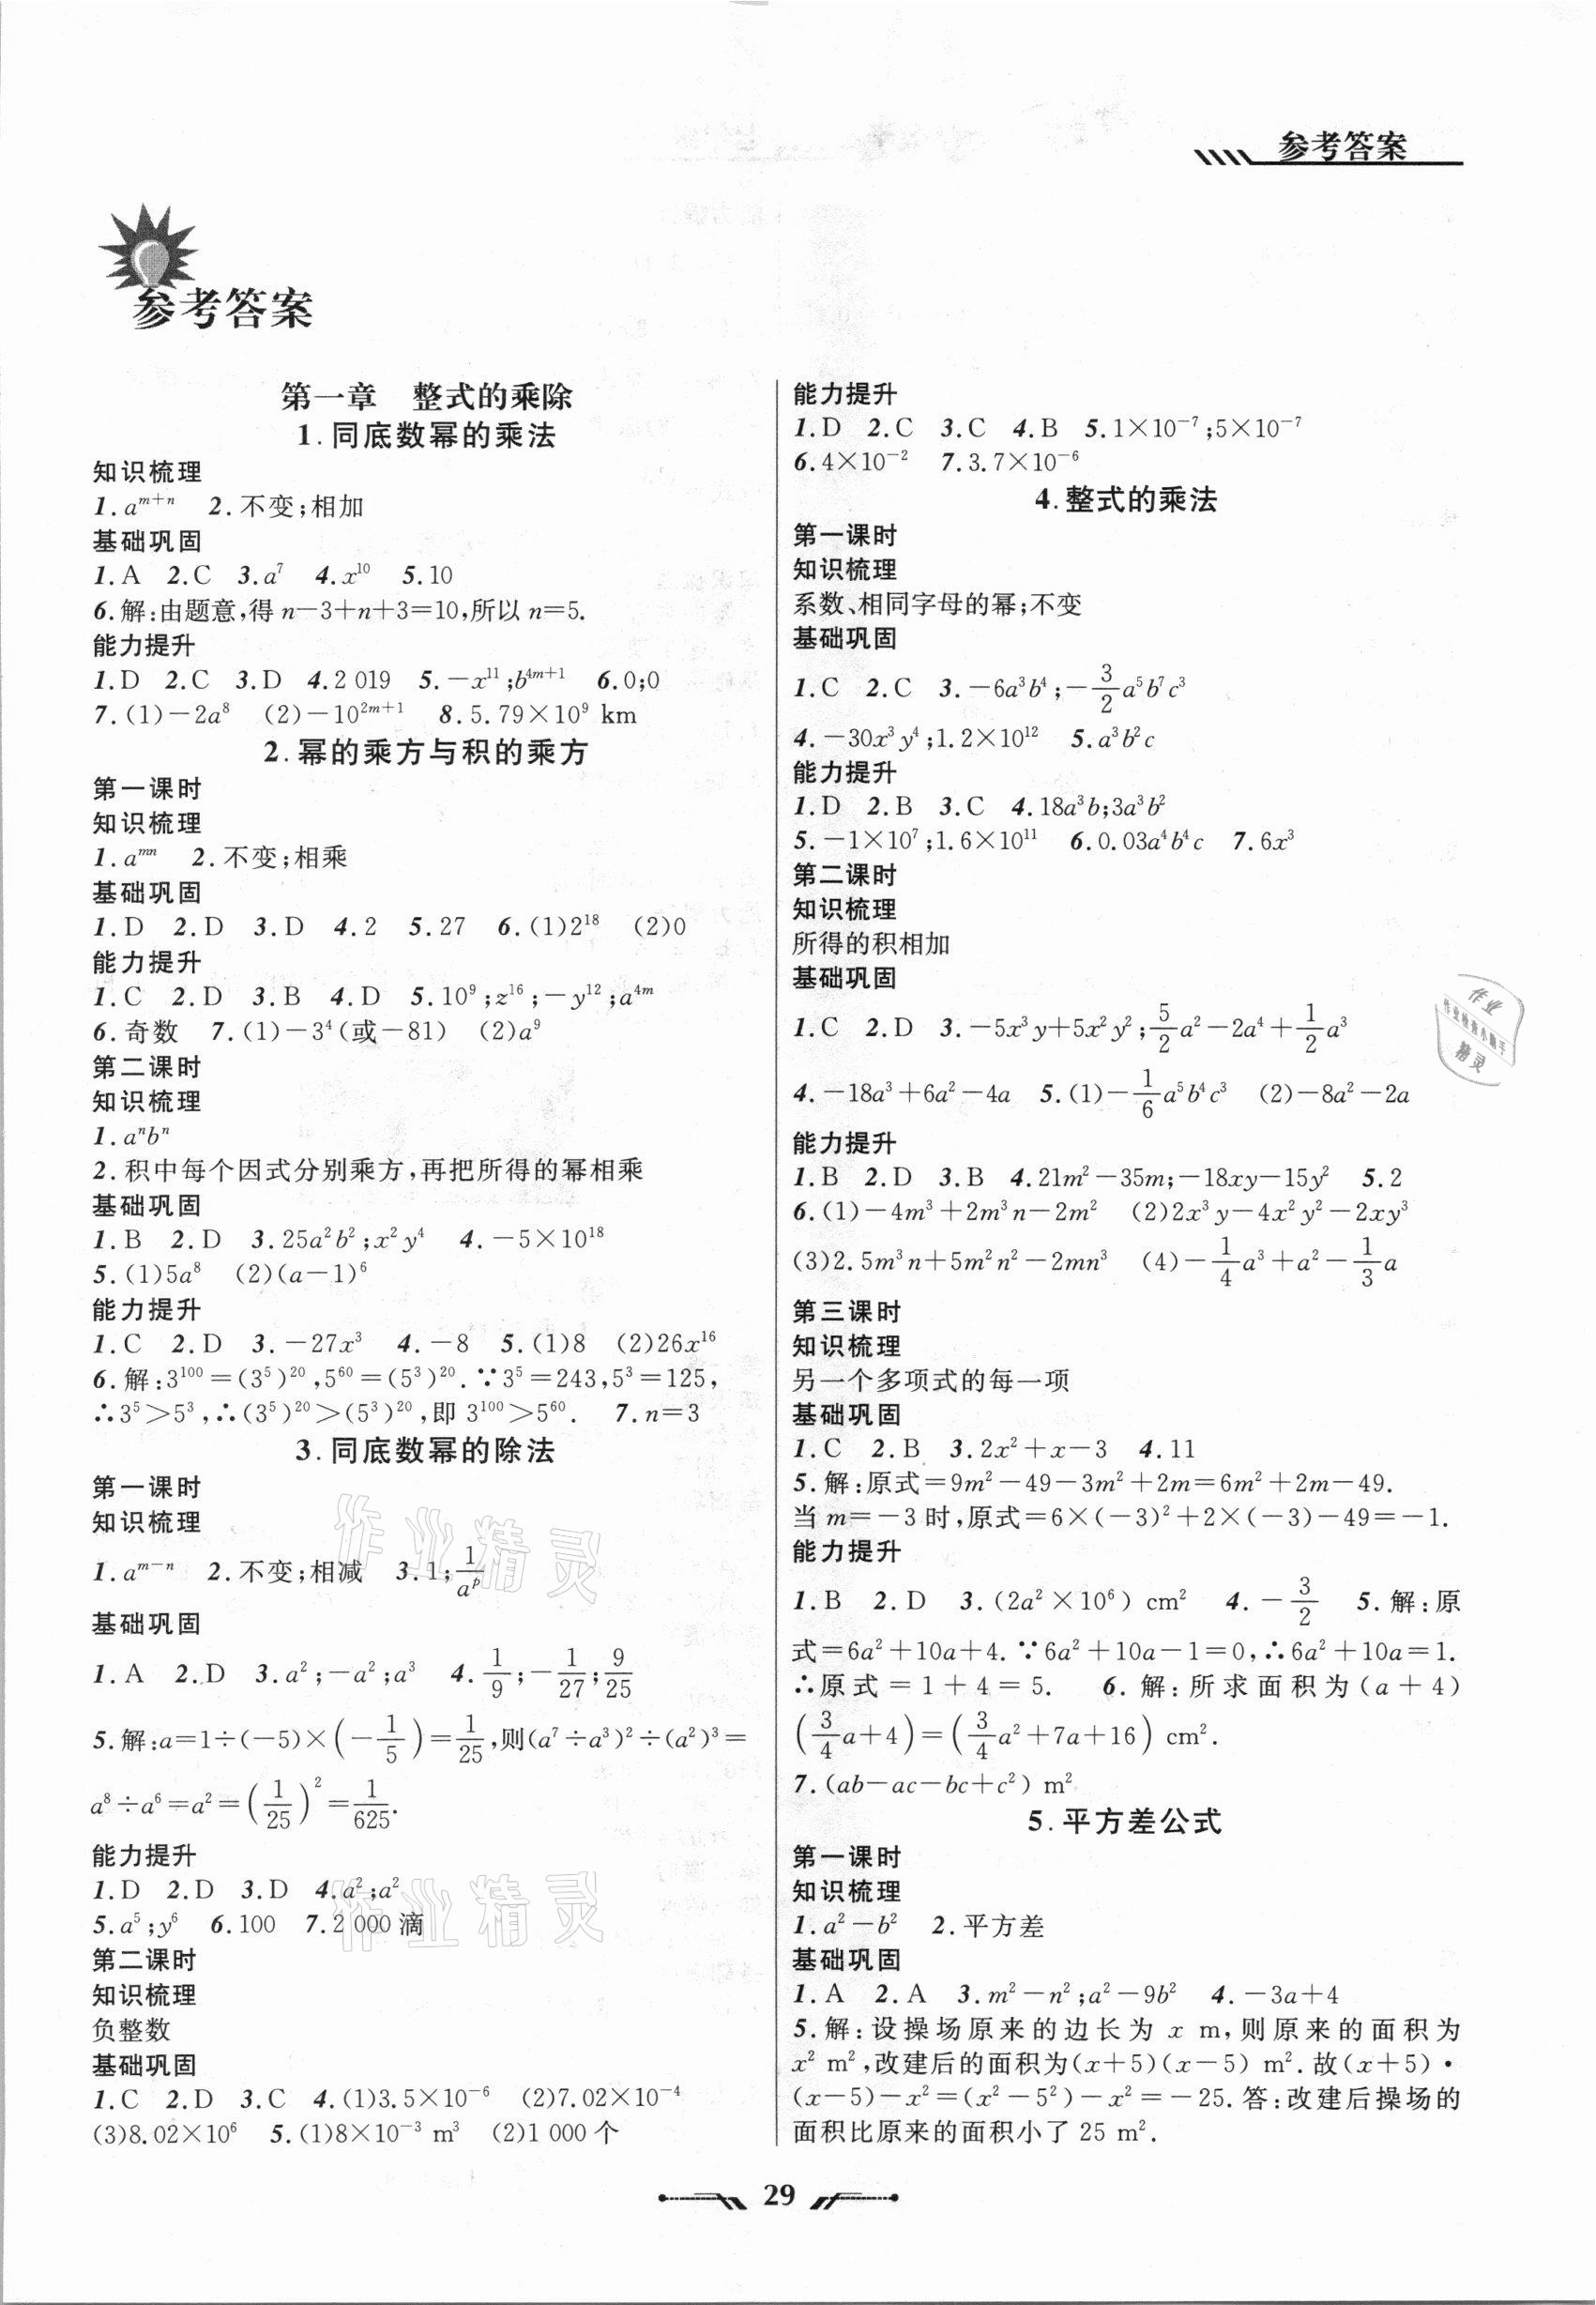 参考答案
参考答案
第一章 整式的乘除
1.同底数幂的乘法
知识梳理
1.aᵐ⁺ⁿ 2.不变;相加
基础巩固
1.A 2.C 3.a⁷ 4.x¹⁰ 5.10
6.解:由题意,得 n－3＋n＋3＝10,所以 n＝5.
能力提升
1.D 2.C 3.D 4.2 019 5.－x¹¹;b⁴ᵐ⁺¹ 6.0;0
7.(1)－2a⁸ (2)－10²ᵐ⁺¹ 8.5.79×10⁹ km
2.幂的乘方与积的乘方
第一课时
知识梳理
1.aᵐⁿ 2.不变;相乘
基础巩固
1.D 2.D 3.D 4.2 5.27 6.(1)2¹⁸ (2)0
能力提升
1.C 2.D 3.B 4.D 5.10⁹;z¹⁶;－y¹²;a⁴ᵐ
6.奇数 7.(1)－3⁴(或－81) (2)a⁹
第二课时
知识梳理
1.aⁿbⁿ
2.积中每个因式分别乘方,再把所得的幂相乘
基础巩固
1.B 2.D 3.25a²b²;x²y⁴ 4.－5×10¹⁸
5.(1)5a⁸ (2)(a－1)⁶
能力提升
1.C 2.D 3.－27x³ 4.－8 5.(1)8 (2)26x¹⁶
6.解:3¹⁰⁰＝(3⁵)²⁰,5⁶⁰＝(5³)²⁰.∵3⁵＝243,5³＝125,
∴3⁵＞5³,∴(3⁵)²⁰＞(5³)²⁰,即 3¹⁰⁰＞5⁶⁰. 7.n＝3
3.同底数幂的除法
第一课时
知识梳理
1.aᵐ⁻ⁿ 2.不变;相减 3.1;1/aᵖ
基础巩固
1.A 2.D 3.a²;－a²;a³ 4.1/9;－1/27;9/25
5.解:a＝1÷(－5)×(－1/5)＝1/25,则(a⁷÷a³)²÷(a²)³＝
a⁸÷a⁶＝a²＝(1/25)²＝1/625.
能力提升
1.D 2.D 3.D 4.a²;a²
5.a⁵;y⁶ 6.100 7.2 000 滴
第二课时
知识梳理
负整数
基础巩固
1.C 2.D 3.C 4.(1)3.5×10⁻⁶ (2)7.02×10⁻⁴
(3)8.02×10⁶ 5.(1)8×10⁻³ m³ (2)1 000 个
能力提升
1.D 2.C 3.C 4.B 5.1×10⁻⁷;5×10⁻⁷
6.4×10⁻² 7.3.7×10⁻⁶
4.整式的乘法
第一课时
知识梳理
系数、相同字母的幂;不变
基础巩固
1.C 2.C 3.－6a³b⁴;－3/2a⁵b⁷c³
4.－30x³y⁴;1.2×10¹² 5.a³b²c
能力提升
1.D 2.B 3.C 4.18a³b;3a³b²
5.－1×10⁷;1.6×10¹¹ 6.0.03a⁴b⁴c 7.6x³
第二课时
知识梳理
所得的积相加
基础巩固
1.C 2.D 3.－5x³y＋5x²y²;5/2a²－2a⁴＋1/2a³
4.－18a³＋6a²－4a 5.(1)－1/6a⁵b⁴c³ (2)－8a²－2a
能力提升
1.B 2.D 3.B 4.21m²－35m;－18xy－15y² 5.2
6.(1)－4m³＋2m³n－2m² (2)2x³y－4x²y²－2xy³
(3)2.5m³n＋5m²n²－2mn³ (4)－1/4a³＋a²－1/3a
第三课时
知识梳理
另一个多项式的每一项
基础巩固
1.C 2.B 3.2x²＋x－3 4.11
5.解:原式＝9m²－49－3m²＋2m＝6m²＋2m－49.
当 m＝－3 时,原式＝6×(－3)²＋2×(－3)－49＝－1.
能力提升
1.B 2.D 3.(2a²×10⁶) cm² 4.－3/2 5.解:原
式＝6a²＋10a＋4.∵6a²＋10a－1＝0,∴6a²＋10a＝1.
∴原式＝1＋4＝5. 6.解:所求面积为(a＋4)
(3/4a＋4)＝(3/4a²＋7a＋16) cm².
7.(ab－ac－bc＋c²) m²
5.平方差公式
第一课时
知识梳理
1.a²－b² 2.平方差
基础巩固
1.A 2.A 3.m²－n²;a²－9b² 4.－3a＋4
5.解:设操场原来的边长为 x m,则原来的面积为
x² m²,改建后的面积为(x＋5)(x－5) m².故(x＋5)·
(x－5)－x²＝(x²－5²)－x²＝－25.答:改建后操场的
面积比原来的面积小了 25 m².
作业
作业检查小助手
精灵
作业精灵
作业精灵
29